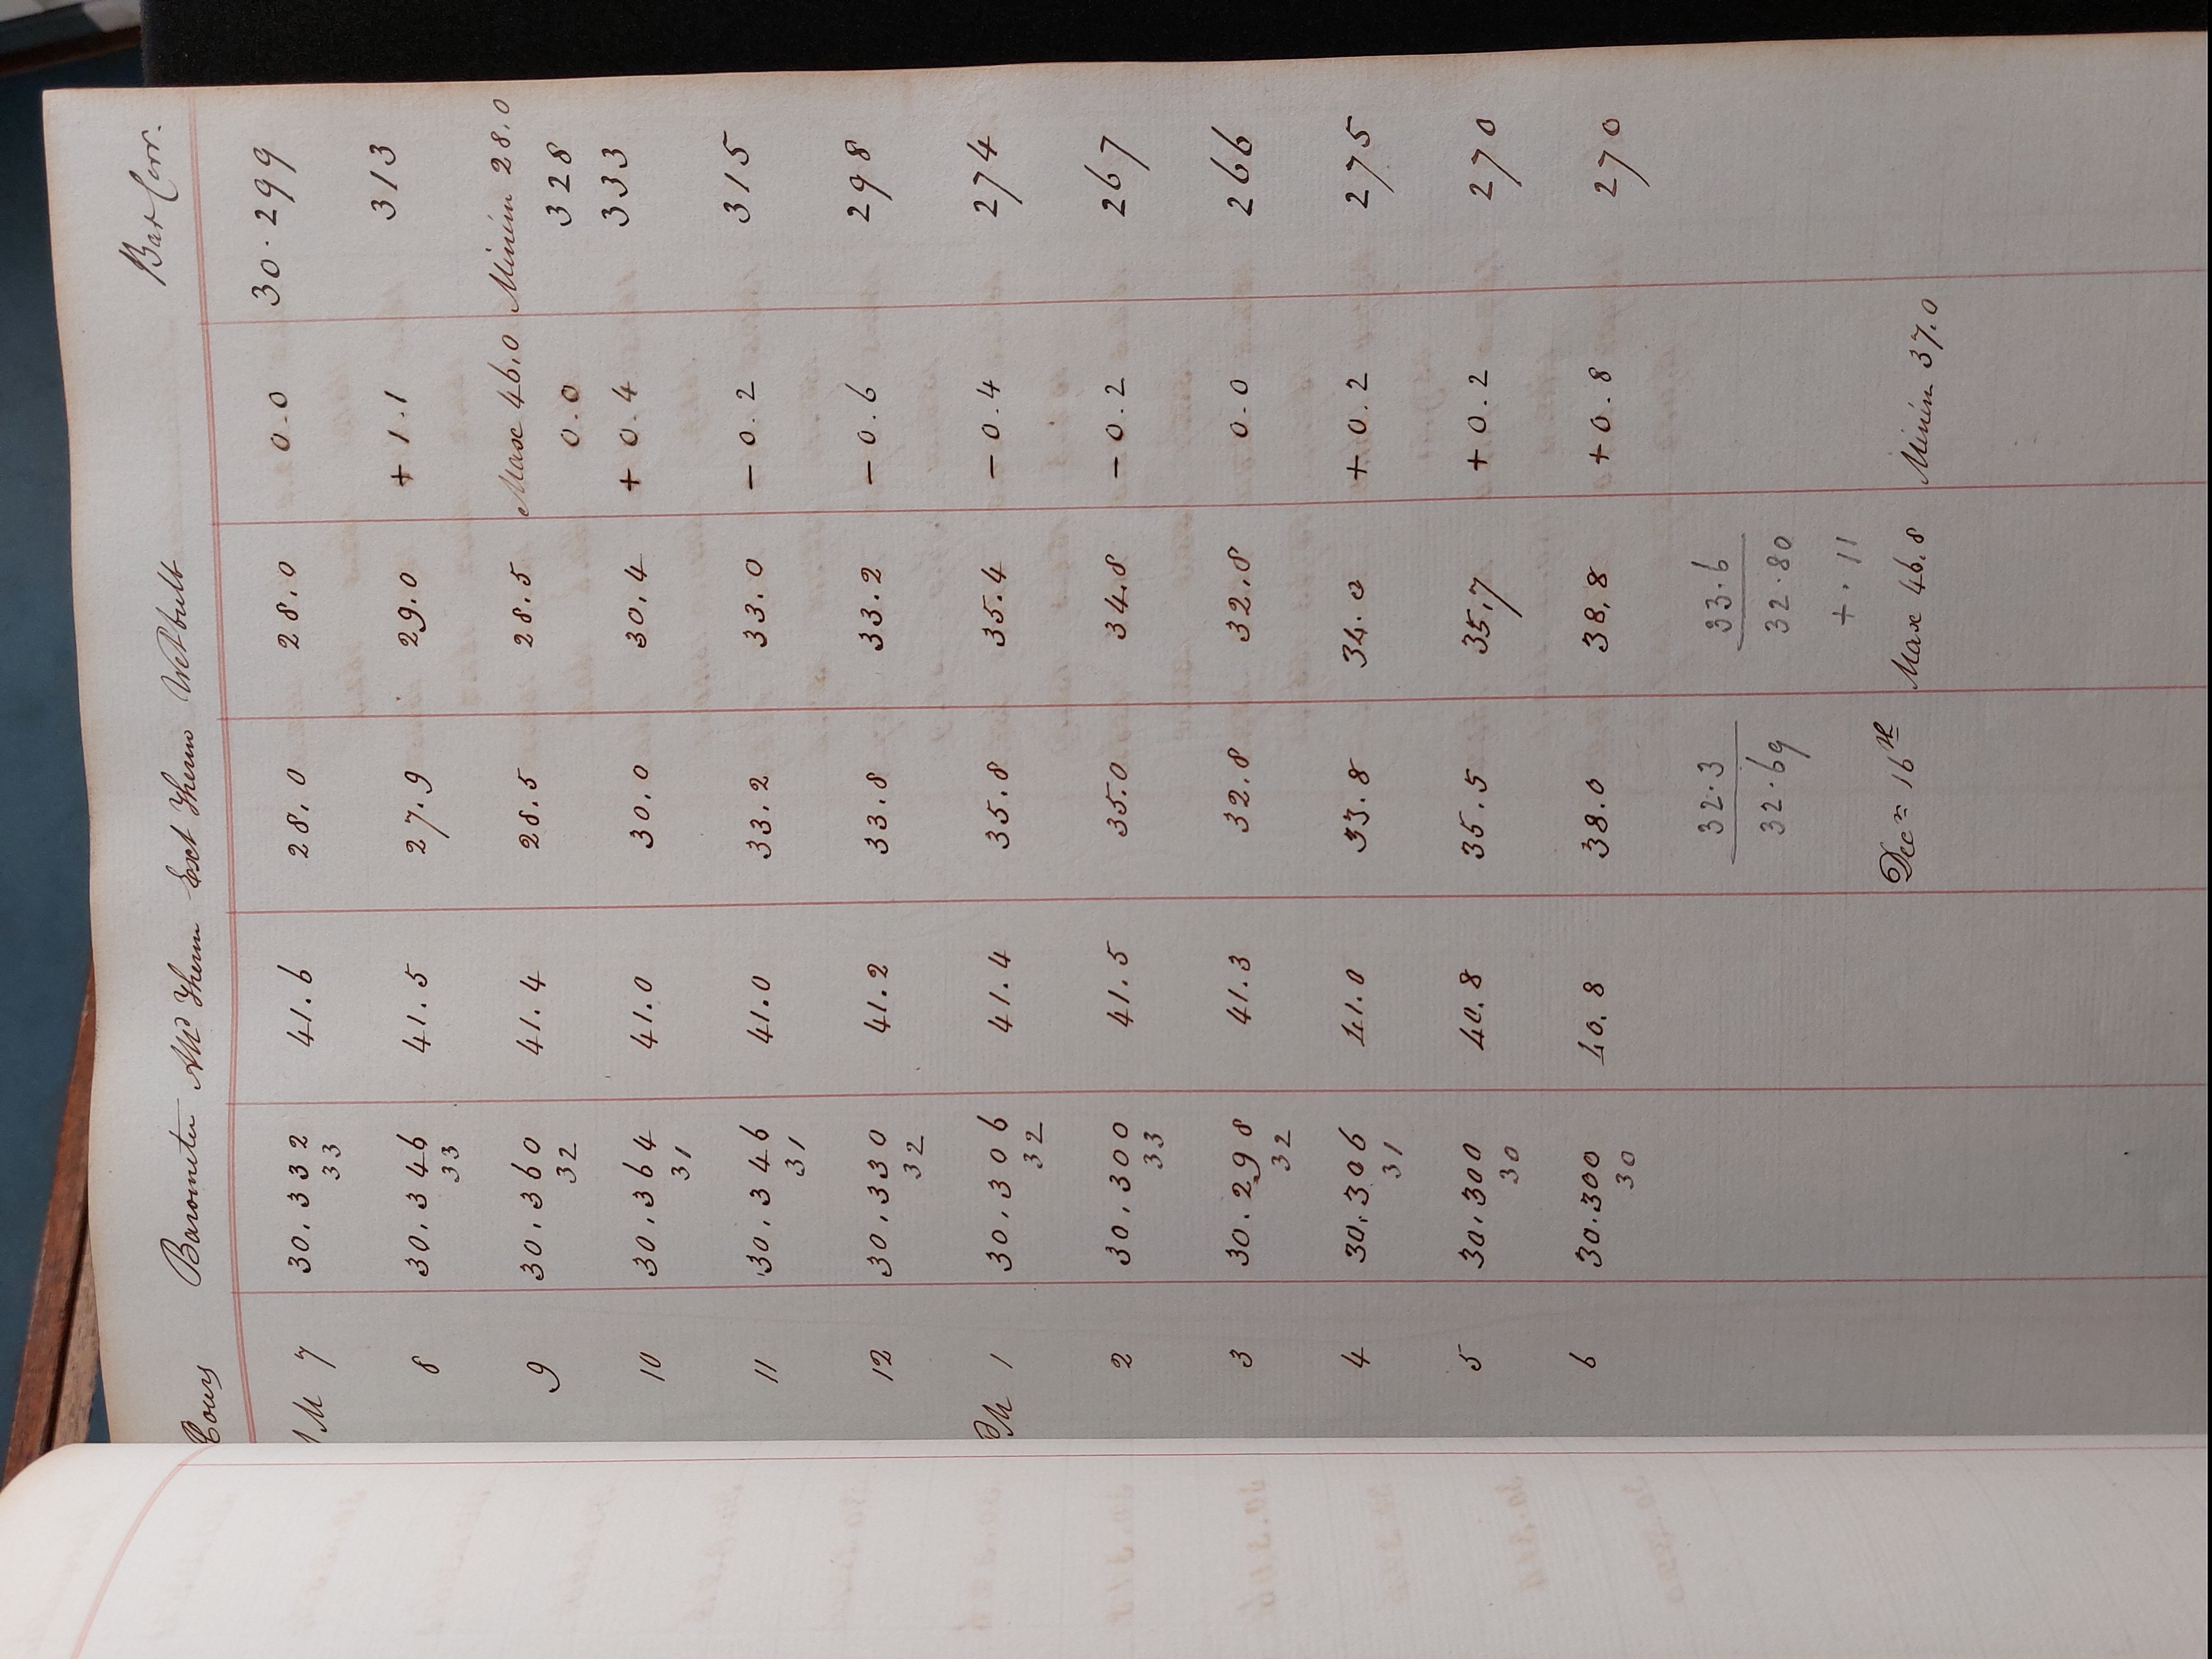 Hours Barometer Attd Therm Ext Therm Wet bulb Bar Corr.
AM 7 30.332 41.6 28.0 28.0 0.0 30.299
33
8 30.346 41.5 27.9 29.0 + 1.1 313
33
9 30.360 41.4 28.5 28.5 Max 46.0 Minim 28.0
32 0.0 328
10 30.364 41.0 30.0 30.4 + 0.4 333
31
11 30.346 41.0 33.2 33.0 - 0.2 315
31
12 30.330 41.2 33.8 33.2 - 0.6 298
32
PM 1 30.306 41.4 35.8 35.4 - 0.4 274
32
2 30.300 41.5 35.0 34.8 - 0.2 267
33
3 30.298 41.3 32.8 32.8 0.0 266
32
4 30.306 41.0 33.8 34.0 + 0.2 275
31
5 30.300 40.8 35.5 35.7 + 0.2 270
30
6 30.300 40.8 38.0 38.8 + 0.8 270
30
32.3 33.6
32.69 32.80
+ .11
Decr 16th Max 46.8 Minim 37.0